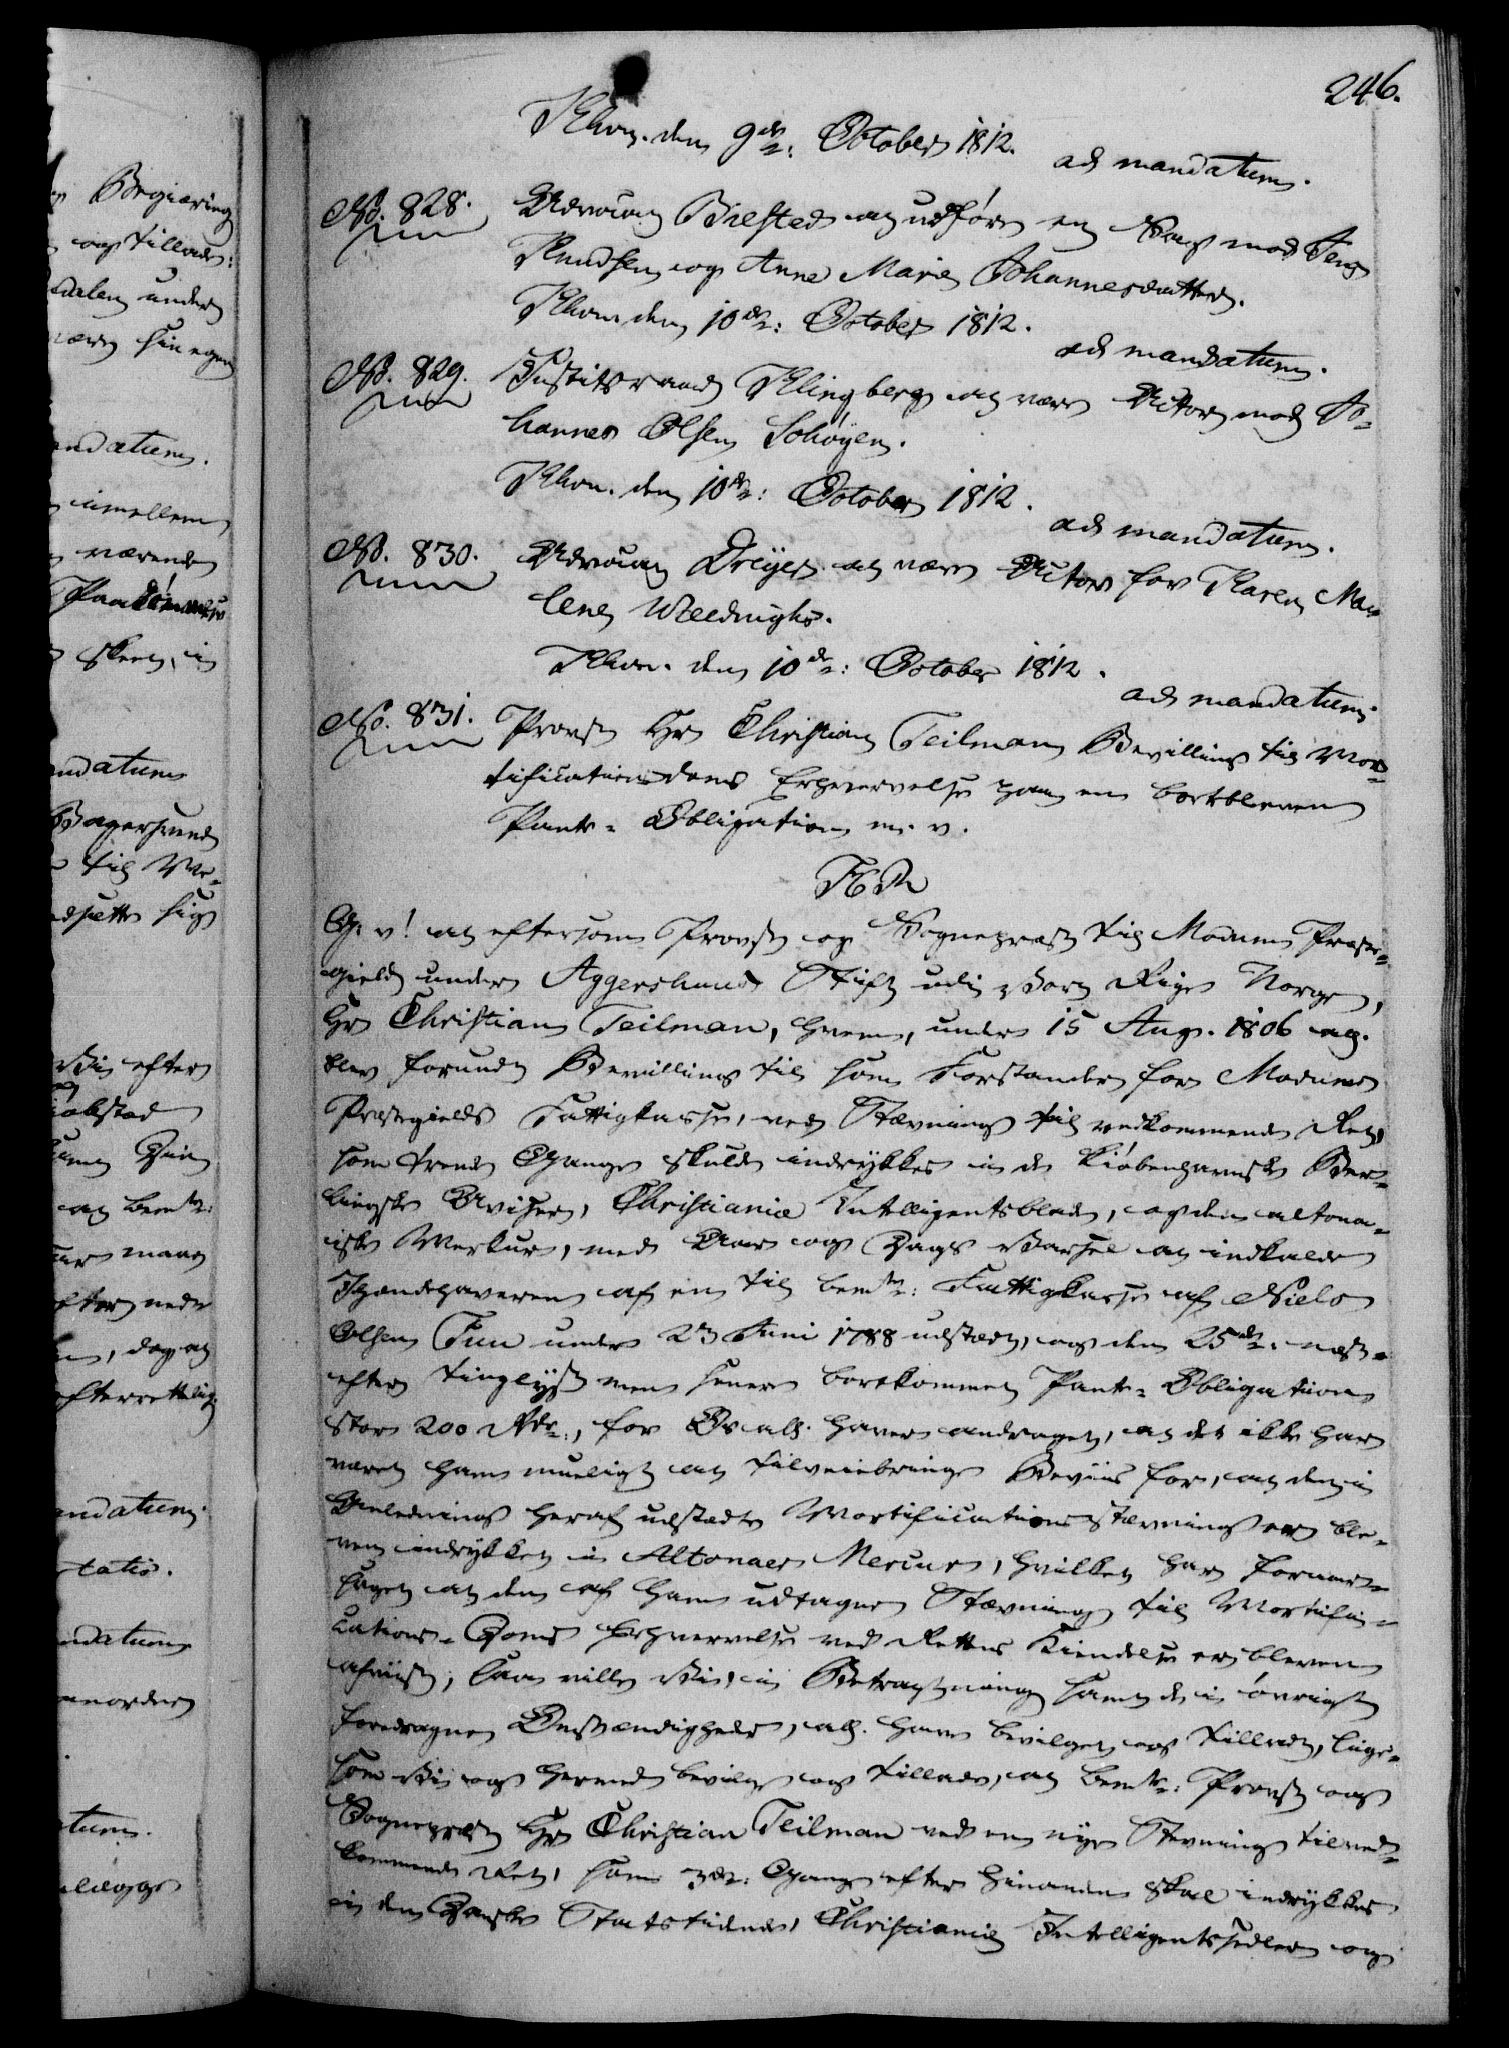 246.
Khvn. den 9de: October 1812.
ad mandatum.
No. 828. Advocat Bielsted at udføre en Sag mod Jens
Knudsen og Anne Marie Johannesdatter.
Khvn. den 10de: October 1812.
ad mandatum.
No. 829. Justitsraad Klingberg at være Actor mod Jo-
hannes Olsen Lohøyen.
Khvn. den 10de: October 1812.
ad mandatum.
No. 830. Advocat Dreyer at være Actor for Karen Ma-
lene
Khvn. den 10de: October 1812.
ad mandatum.
No. 831. Provst Hr Christian Teilman Bevilling til Mor-
tificationsdoms Erhvervelse paa en bortbleven
Pante-Obligation m. v.
G: v! at eftersom Provst og Sognepræst til Modums Præste-
gield under Aggershuus Stift udi Vort Rige Norge,
Hr Christian Teilman, hvem, under 15 Aug. 1806 all.
blev forundt Bevilling til som Forstander for Modums
Præstegields Fattigkasse, ved Stævning til vedkommende Ret,
som trende Gange skulde indrykkes i de Kiøbenhavnske Ber-
lingske Aviser, Christiania Intelligentsblade, og den altona-
iske Merkur, med Aar og Dags Varsel at indkalde
Ihændehaveren af en til bemte: Fattigkasse af Niels
Olsen Fuu under 23 Juni 1788 udstædt, og den 25de: næst-
efter tinglyst men senere bortkommen Pante-Obligation
stor 200 Rdr., for Os all. haver andraget, at det ikke har
været ham mueligt at tilveiebringe Beviis for, at den i
Anledning heraf udstædte Mortifications Stævning er ble-
ven indrykket i Altonaer Mercur, hvilket har foraar-
saget at den af ham udtagne Stævning til Mortifi-
cations-Doms Erhvervelse ved Rettens Kiendelse er bleven
afviist; saa ville Vi, i Betragtning samt de i øvrigt
foredragne Omstændigheder, all. have bevilget og tilladt, lige-
som Vi og herved bevilge og tillade, at bemte: Provst og
Sognepræst Hr Christian Teilman ved en nye Stevning til ved-
kommende Ret, som 3de: Gange efter hinanden skal indrykkes
i den Danske Statstidende, Christiania Intelligentssedler og